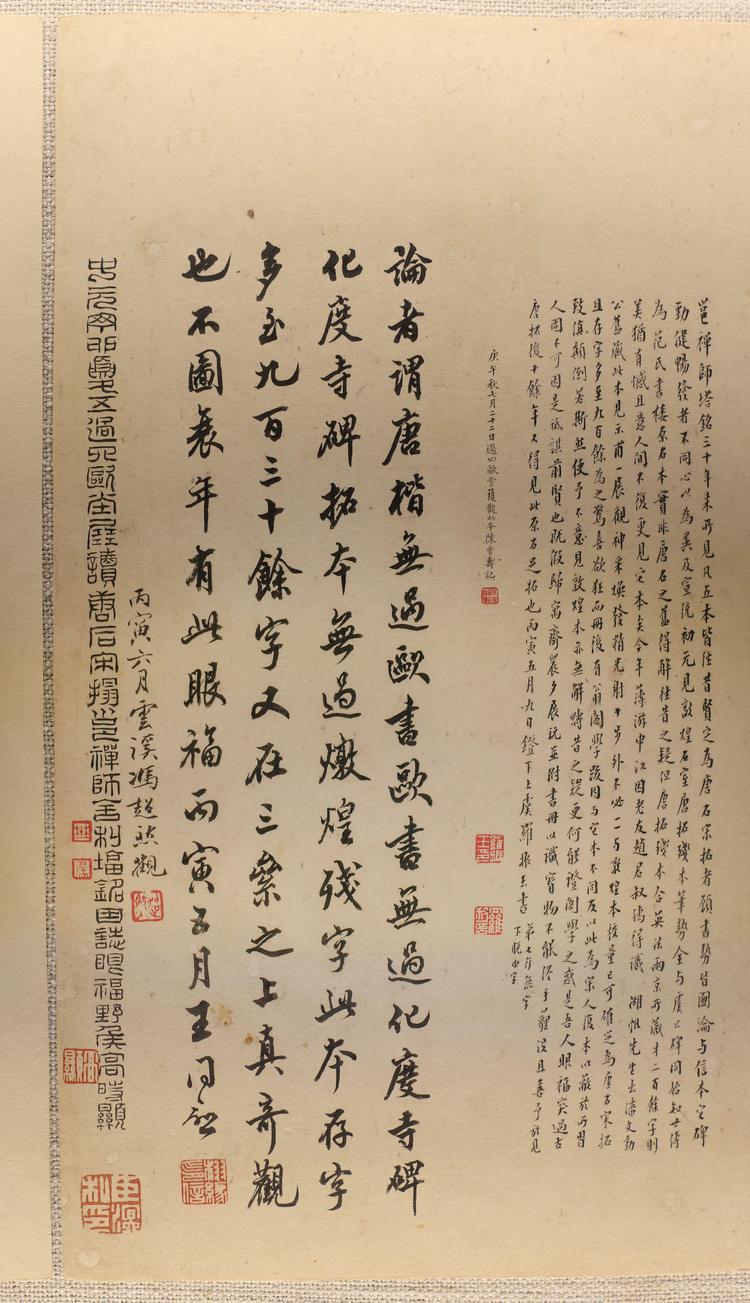 邕禪師塔銘三十年來所見凡五本皆往昔賢定為唐石宋拓者顧書勢皆圓淪與信本它碑
勁健暢發者不同心以為異及宣統初元見敦煌石室唐拓殘本筆勢全與虞公碑同始知世傳
為范氏書樓原石本實非唐石之舊得解往昔之疑但唐拓殘本合英法兩京所藏才二百餘字則
美猶有憾且意人間不復更見完本矣今年薄游申江因老友趙君叔孺得識湖帆先生出潘文勤
公舊藏此本見示甫一展觀神采煥發精光射十步外不必一一與敦煌本校量已可確定為唐石宋拓
且存字多至九百餘為之驚喜欲狂而冊後有翁閣學跋因與它本不同反以此為宋人復本以蔽於所習
致傎顛倒若斯然使予不意見敦煌本亦無解疇昔之疑更何能證閣學之惑是吾人眼福實過古
人固不可因是祗諆前賢也既假歸寓齋晨夕展玩並附書冊以識寶物不輕落手雚沒且喜予於見
唐拓後十餘年又得見此原石足拓也丙寅五月九日鐙下上虞羅振玉書
第七行無字下脫由字
庚午秋七月二十二日過四歐堂獲觀此本陳曾壽記
論者謂唐楷無過歐書歐書無過化度寺碑
化度寺碑拓本無過燉煌殘字此本存字
多至九百三十餘字又在三絫之上真奇觀
也不圖衰年有此眼福丙寅五月王同愈
丙寅六月雲溪馮超然觀
讀唐石宋搨邕禪師舍利塔銘田誌眼福野侯高時顯